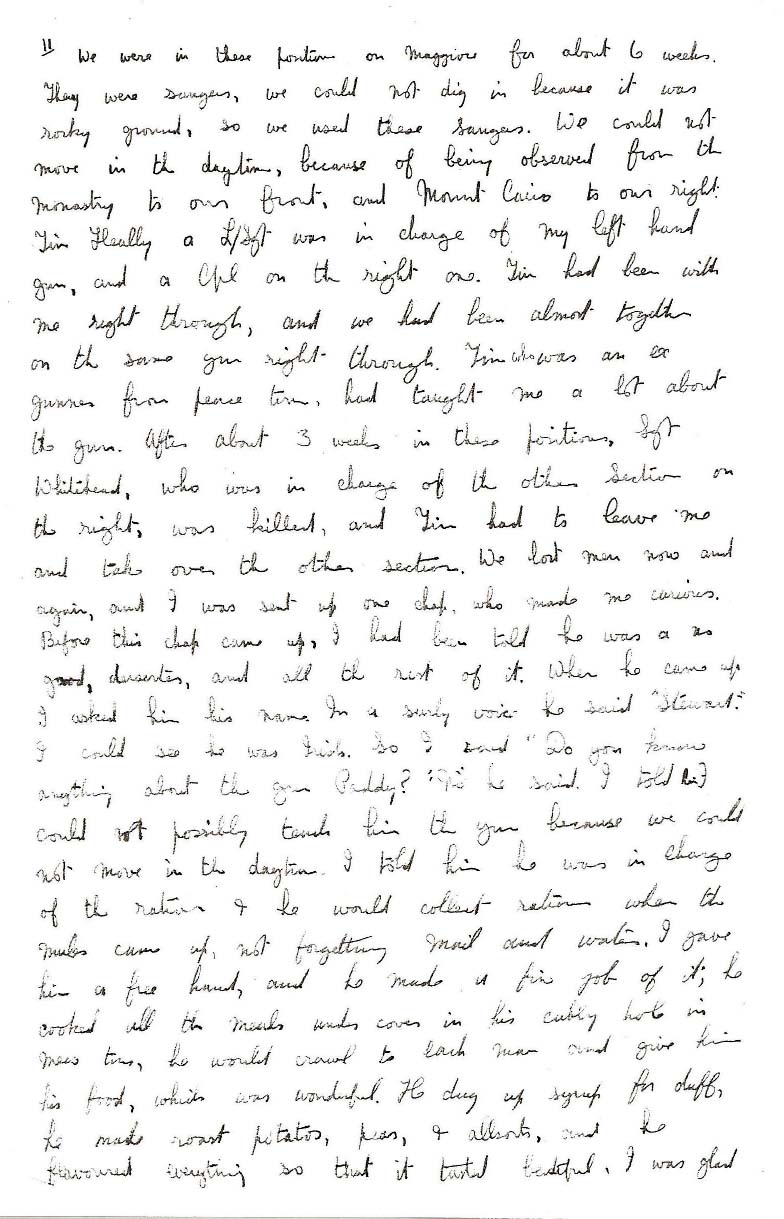 11 We were in these position on Maggiore for about 6 weeks.
They were sangers, we could not dig in because it was
rocky ground, so we used these sangers. We could not
move in the daytime, because of being observed from the
monastry to our front, and Mount Cairo to our right.
Tim Heally a L/Sgt was in charge of my left hand
gun, and a Cpl on the right one. Tim had been with
me right through, and we had been almost together
on the same gun right through. Tim who was an ex
gunner from peace time, had taught me a lot about
the gun. After about 3 weeks in these positions, Sgt
Whitehead, who was in charge of the other section on
the right, was killed, and Tim had to leave me
and take over the other section. We lost men now and
again, and I was sent up one chap, who made me curious.
Before this chap came up, I had been told he was a no
good, deserter, and all the rest of it. When he came up
I asked him his name. In a surly voice he said "Stewart."
I could see he was Irish. So I said "Do you know
anything about the gun Paddy? "No" he said. I told him I
could not possibly teach him the gun because we could
not move in the daytime. I told him he was in charge
of the ration & he would collect ration when the
mules came up, not forgetting mail and water. I gave
him a free hand, and he made a fine job of it; he
cooked all the meals under cover in his cubby hole in
mess tins, he would crawl to each man and give him
his food, which was wonderful. He dug up syrup for duff,
he made roast potatos, peas, & allsorts, and he
flavoured everything so that it tasted beatiful. I was glad